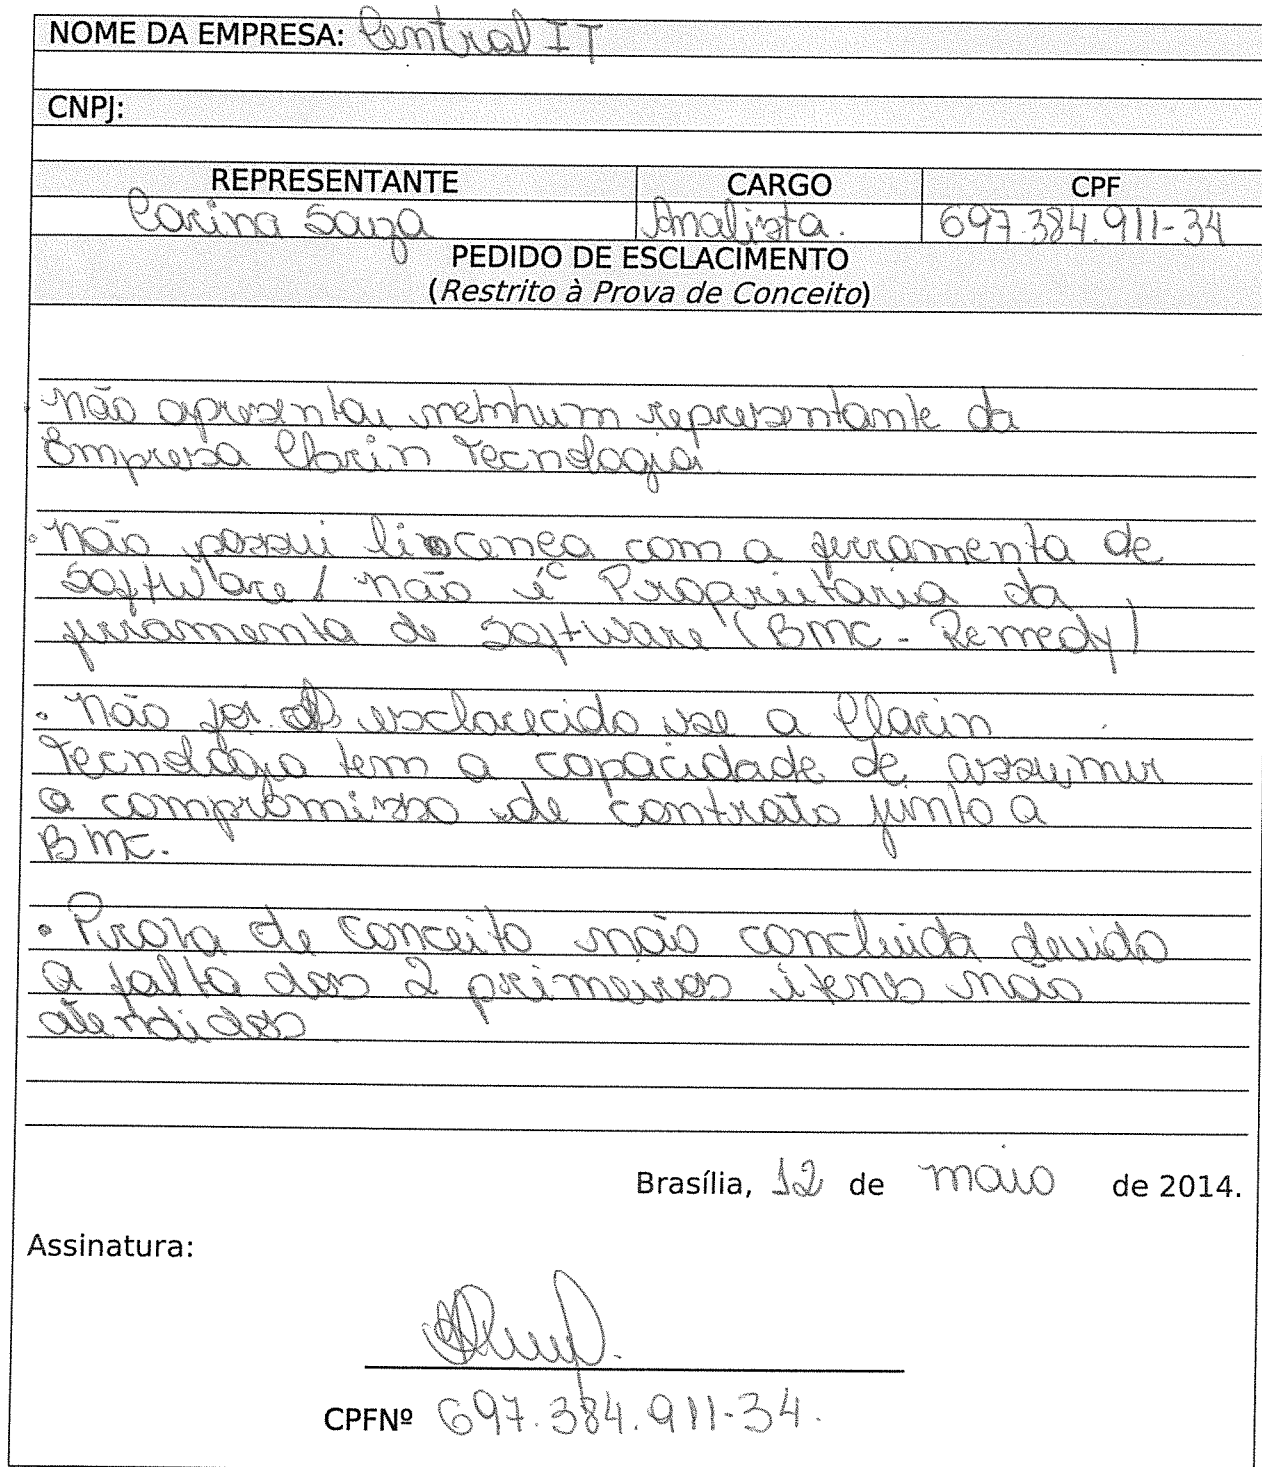 NOME DA EMPRESA: Central IT
CNPJ:
REPRESENTANTE CARGO CPF
Carina Souza Analista. 697.384.911-34
PEDIDO DE ESCLACIMENTO
(Restrito à Prova de Conceito)
Não apresentou nenhum representante da
Empresa Clarin Tecnologia
• Não possui licença com a ferramenta de
Software / não é Proprietária da
ferramenta de software (BMC - Remedy)
• Não foi esclarecido se a Clarin
Tecnologia tem a capacidade de assumir
o compromisso de contrato junto a
BMC.
• Prova de conceito não concluida devido
a falta dos 2 primeiros itens não
atendidos
Brasília, 12 de maio de 2014.
Assinatura:
CPFNº 697.384.911-34.